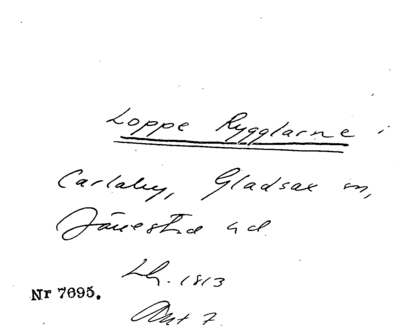 Loppe Rygglarne i
Carlaby, Gladsax sn,
Järrestad hd
1813
Nr 7695.
Ant 7